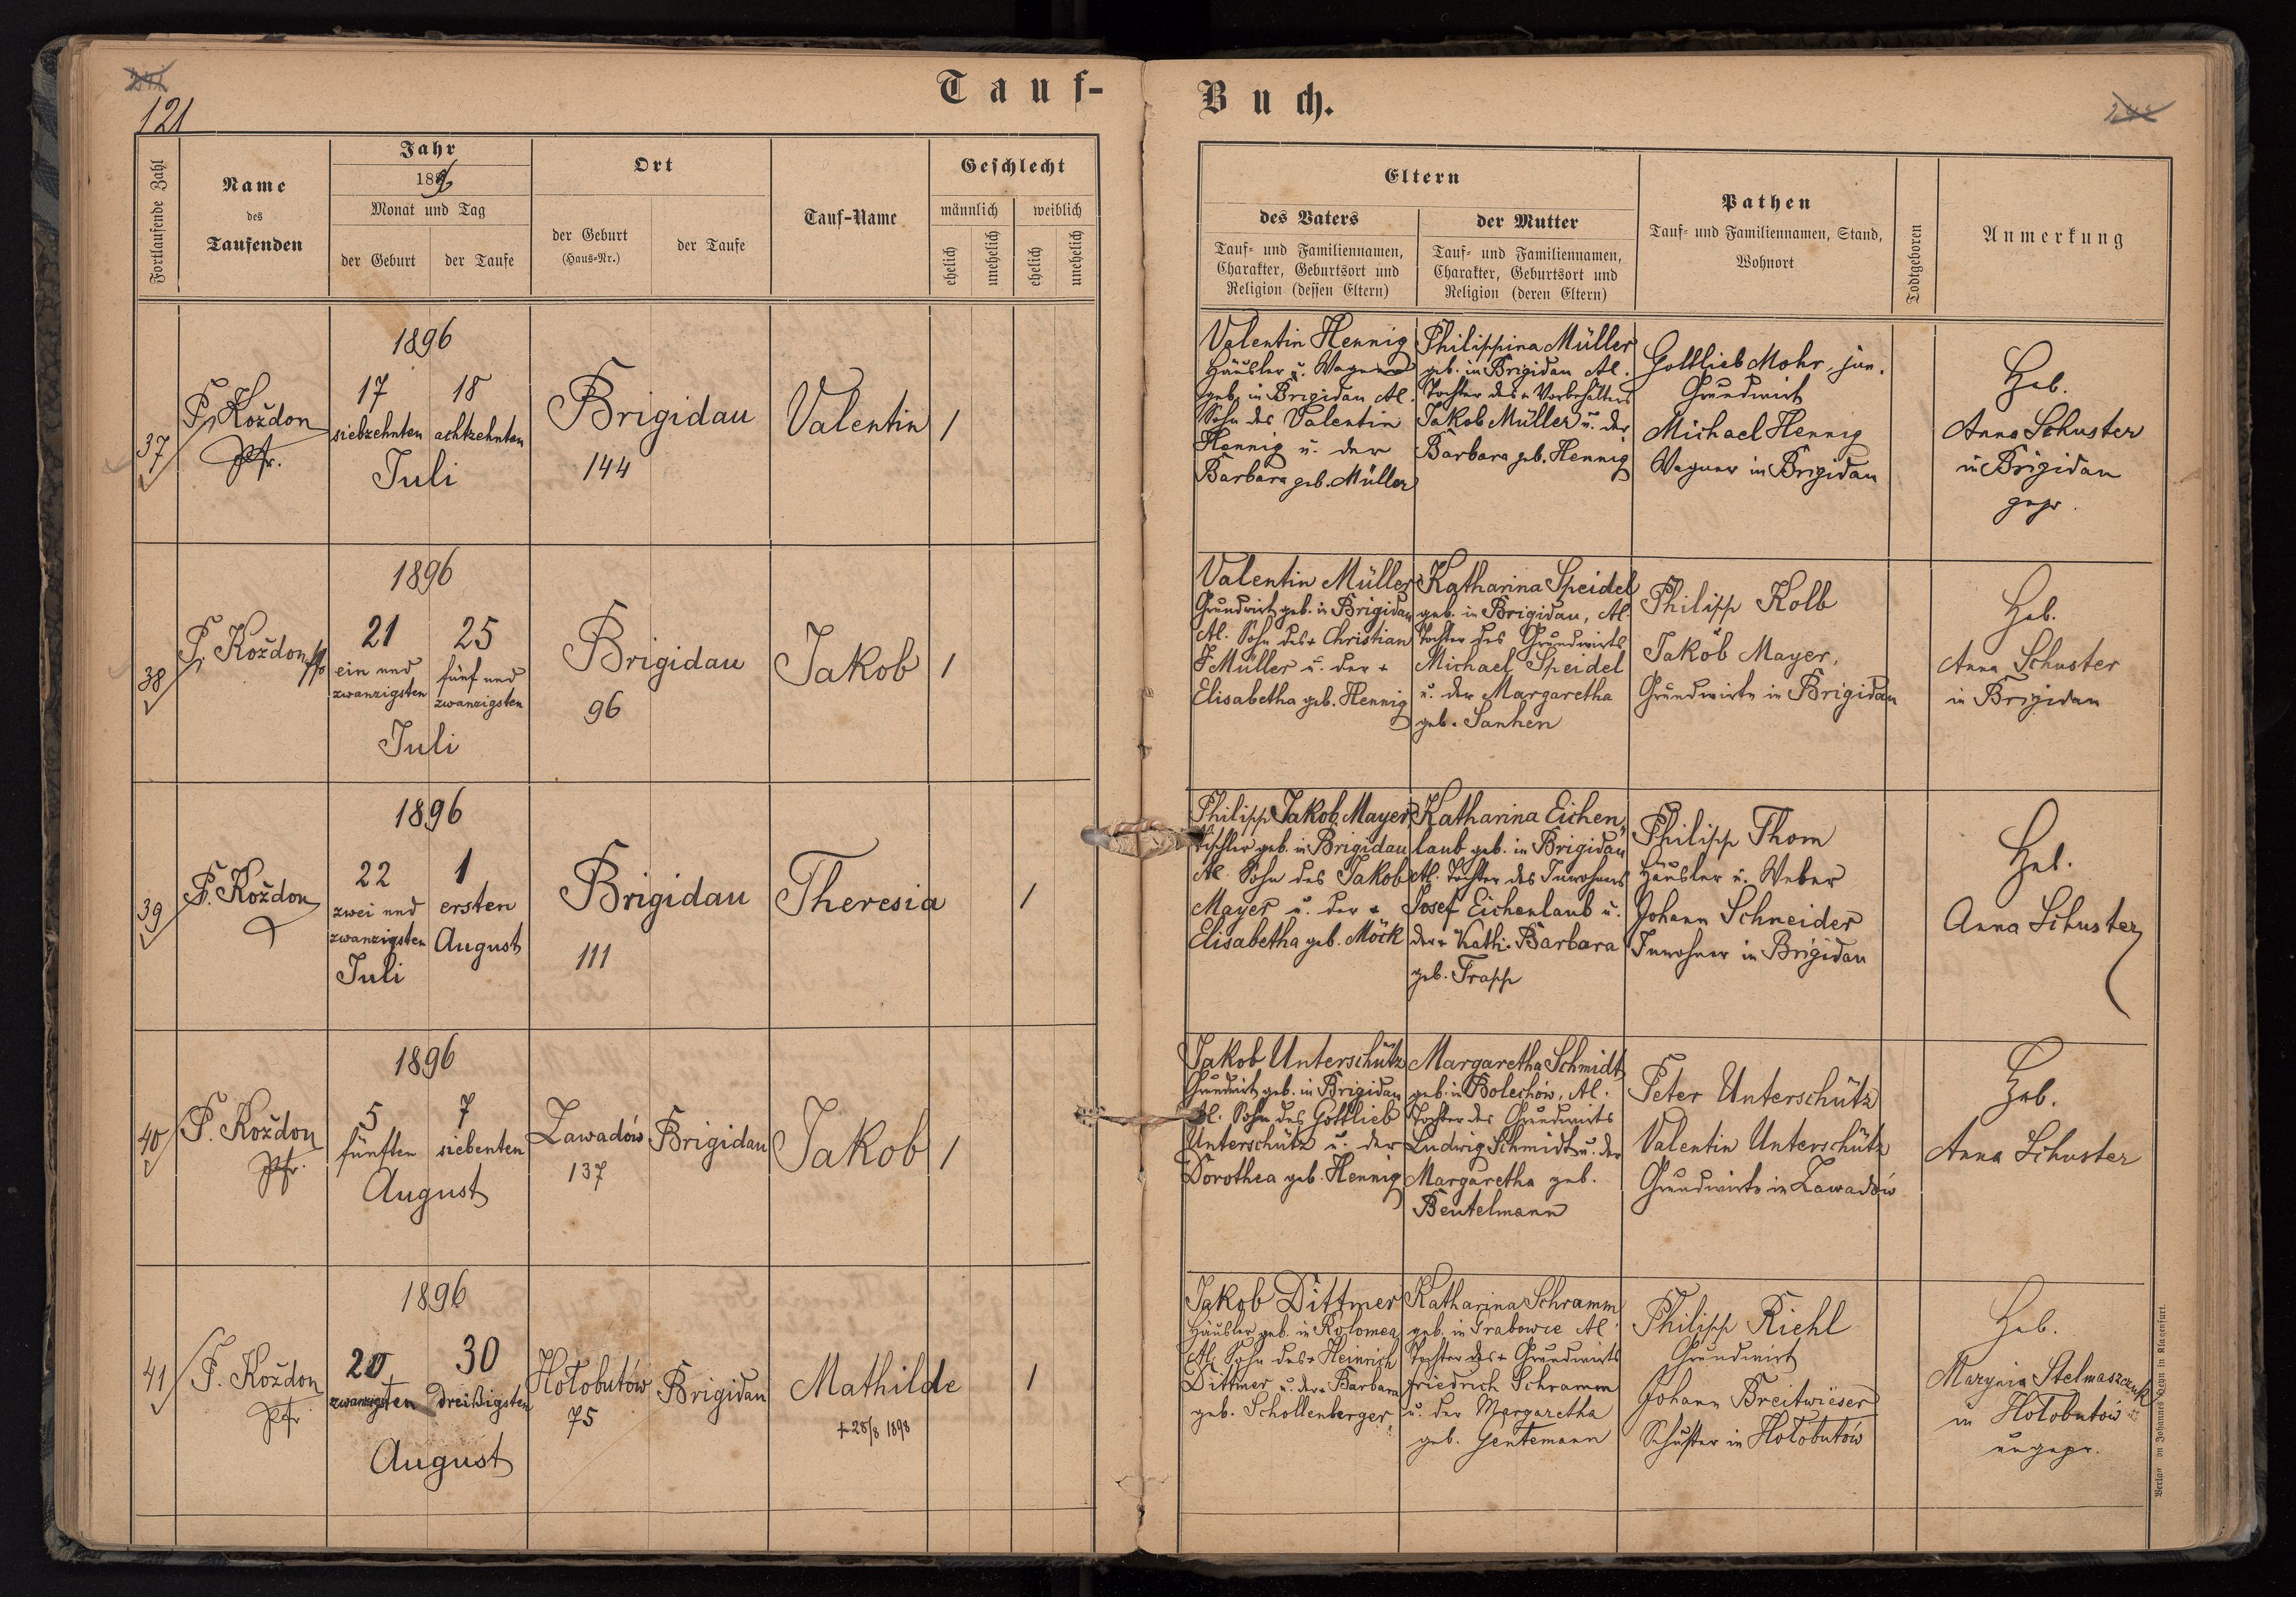 121
Tauf-
Buch.
Fortlaufende Zahl
Name
des
Taufenden
Jahr
1896
Monat und Tag
der Geburt
der Taufe
Ort
der Geburt
(Haus-Nr.)
der Taufe
Tauf-Name
Geschlecht
männlich
weiblich
ehelich
unehelich
ehelich
unehelich
Eltern
des Vaters
Tauf- und Familiennamen,
Charakter, Geburtsort und
Religion (dessen Eltern)
der Mutter
Tauf- und Familiennamen,
Charakter, Geburtsort und
Religion (deren Eltern)
Pathen
Tauf- und Familiennamen, Stand,
Wohnort
Todtgeboren
Anmerkung
37
F. Koždon
Pfr.
1896
17
siebzehnten
18
achtzehnten
Juli
Brigidau
144
Valentin
1
Valentin Hennig
Häusler u. Wagner
geb. in Brigidau Al.
Sohn des Valentin
Hennig u. der
Barbara geb. Müller
Philippina Müller
geb. in Brigidau Al.
Tochter des + Vorbehälters
Jakob Müller u. der
Barbara geb. Hennig
Gottlieb Mohr, jun.
Grundwirt
Michael Hennig
Wagner in Brigidau
Heb.
Anna Schuster
in Brigidau
gepr.
38
F. Koždon
1896
21
ein und
zwanzigsten
25
fünf und
zwanzigsten
Juli
Brigidau
96
Jakob
1
Valentin Müller
Grundwirt geb. in Brigidau
Al. Sohn des + Christian
F Müller u. der +
Elisabetha geb. Hennig
Katharina Speidel
geb. in Brigidau, Al.
Tochter des Grundwirts
Michael Speidel
u. der Margaretha
geb. Sanhen
Philipp Kolb
Jakob Mayer,
Grundwirte in Brigidau
Heb.
Anna Schuster
in Brigidau
39
F. Koždon
1896
22
zwei und
zwanzigsten
Juli
1
ersten
August
Brigidau
111
Theresia
1
Philipp Jakob Mayer
Tischler geb. in Brigidau
Al. Sohn des Jakob
Mayer u. der +
Elisabetha geb. Möck
Katharina Eichen„
laub geb. in Brigidau
Al. Tochter des Inwohners
Josef Eichenlaub u.
der + Kath. Barbara
geb. Trapp
Philipp Thom
Häusler u. Weber
Johann Schneider
Inwohner in Brigidau
Heb.
Anna Schuster
40
F. Koždon
Pfr.
1896
5
fünften
7
siebenten
August
Zawadów
137
Brigidau
Jakob
1
Jakob Unterschütz
Grundwirt geb. in Brigidau
Al. Sohn des Gottlieb
Unterschütz u. der
Dorothea geb. Hennig
Margaretha Schmidt
geb. in Bolechów, Al.
Tochter des Grundwirts
Ludwig Schmidt u. der
Margaretha geb.
Beutelmann
Peter Unterschütz
Valentin Unterschütz
Grundwirte in Zawadów
Heb.
Anna Schuster
41
F. Koždon
Pfr
1896
20
zwanzigsten
30
dreißigsten
August
Hołobutów
75
Brigidau
Mathilde
+ 28/8 1898
1
Jakob Dittmer
Häusler geb. in Kolomea
Al. Sohn des + Heinrich
Dittmer u. der + Barbara
geb. Schollenberger
Katharina Schramm
geb. in Grabowce Al.
Tochter des + Grundwirts
Friedrich Schramm
u. der Margaretha
geb. Gentemann
Philipp Riehl
Grundwirt
Johann Breitwieser
Schuster in Hołobutów
Heb.
Marynia Stelmaszczuk
in Hołobutów
ungepr.
Verlag von Johannes Heyn in Klagenfurt.